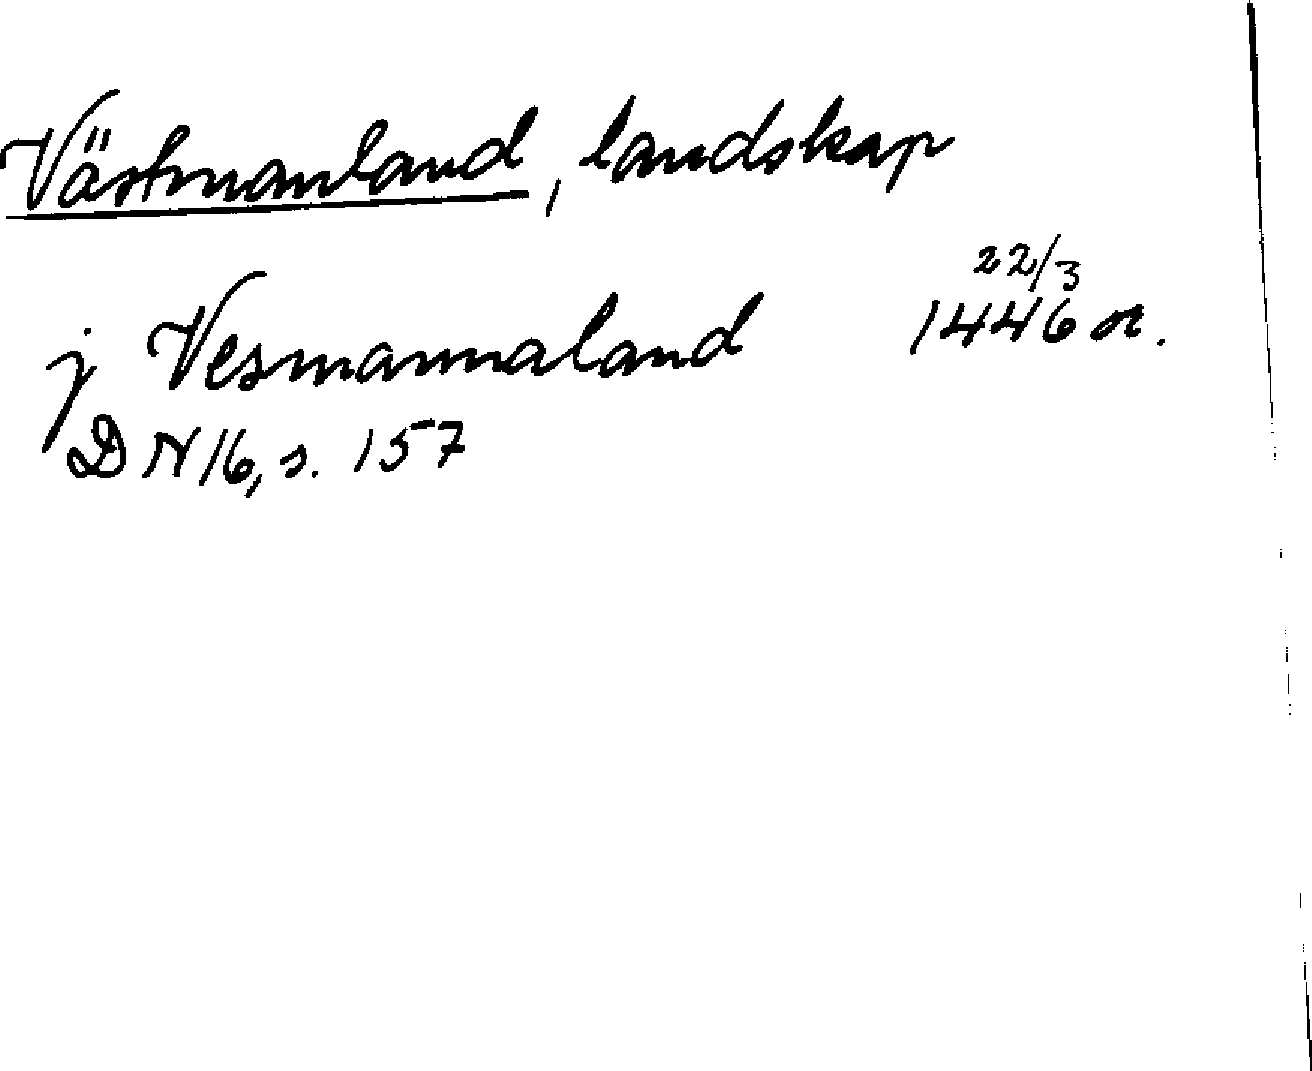 Västmanland, landskap
j Vesmannaland 22/3 1446 or.
DN 16, s. 157